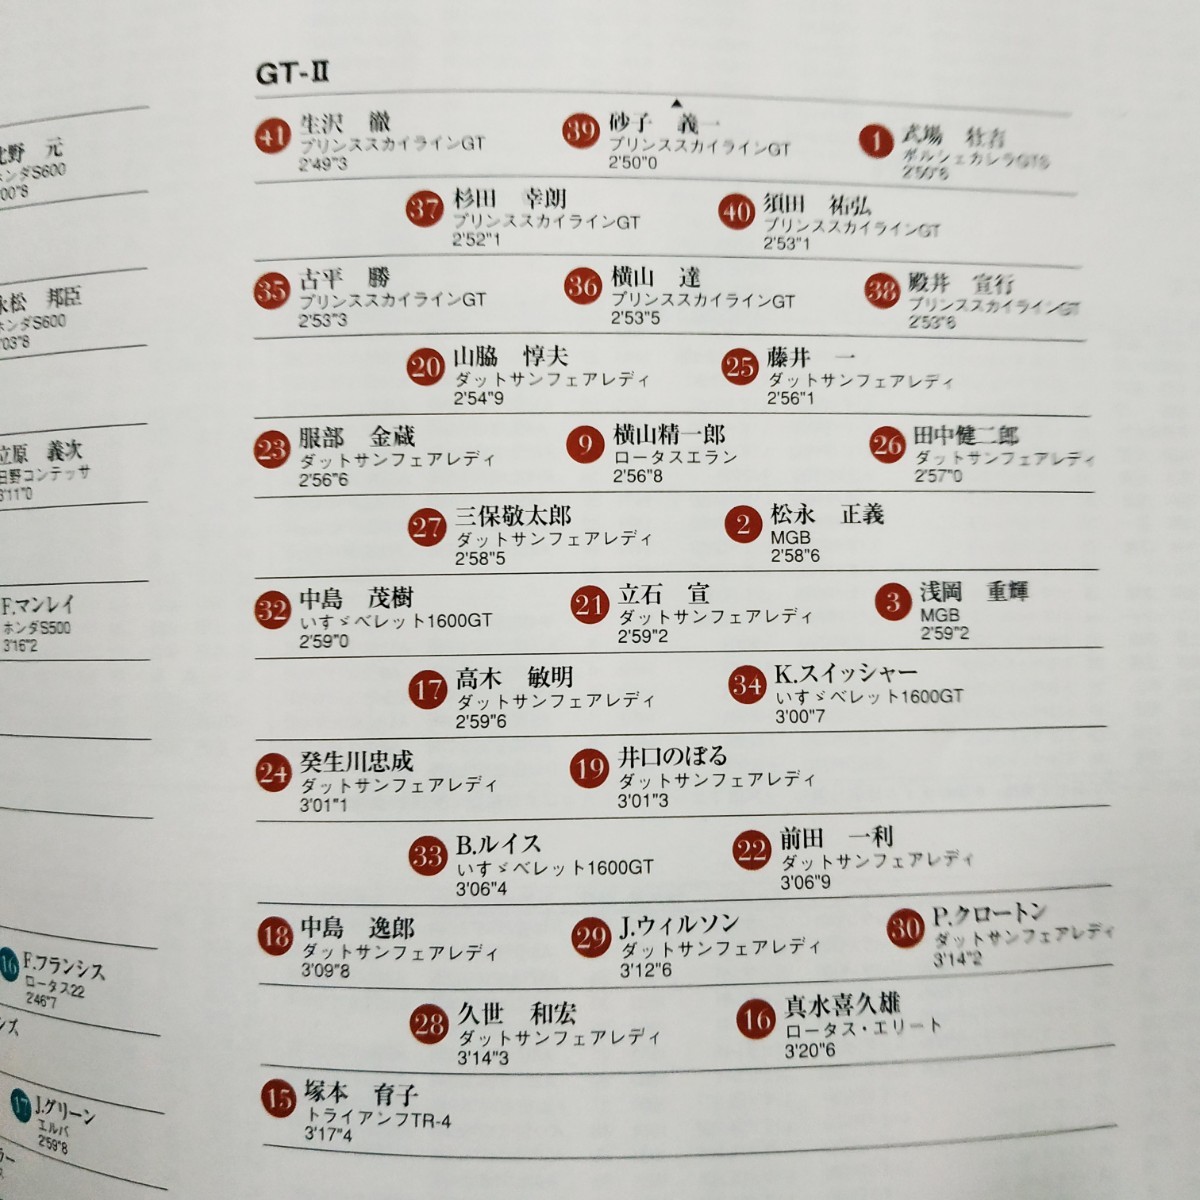 GT-II
41
生沢 徹
プリンススカイラインGT
2'49"3
39
砂子 義一
プリンススカイラインGT
2'50"0
1
式場 壮吉
ポルシェカレラGTS
2'50"6
37
杉田 幸朗
プリンススカイラインGT
2'52"1
40
須田 祐弘
プリンススカイラインGT
2'53"1
35
古平 勝
プリンススカイラインGT
2'53"3
36
横山 達
プリンススカイラインGT
2'53"5
38
殿井 宣行
プリンススカイラインGT
2'53"6
20
山脇 惇夫
ダットサンフェアレディ
2'54"9
25
藤井 一
ダットサンフェアレディ
2'56"1
23
服部 金蔵
ダットサンフェアレディ
2'56"6
9
横山精一郎
ロータスエラン
2'56"8
26
田中健二郎
ダットサンフェアレディ
2'57"0
27
三保敬太郎
ダットサンフェアレディ
2'58"5
2
松永 正義
MGB
2'58"6
32
中島 茂樹
いすゞベレット1600GT
2'59"0
21
立石 宣
ダットサンフェアレディ
2'59"2
3
浅岡 重輝
MGB
2'59"2
17
高木 敏明
ダットサンフェアレディ
2'59"6
34
K.スイッシャー
いすゞベレット1600GT
3'00"7
24
癸生川忠成
ダットサンフェアレディ
3'01"1
19
井口のぼる
ダットサンフェアレディ
3'01"3
33
B.ルイス
いすゞベレット1600GT
3'06"4
22
前田 一利
ダットサンフェアレディ
3'06"9
18
中島 逸郎
ダットサンフェアレディ
3'09"8
29
J.ウィルソン
ダットサンフェアレディ
3'12"6
30
P.クロートン
ダットサンフェアレディ
3'14"2
28
久世 和宏
ダットサンフェアレディ
3'14"3
16
真水喜久雄
ロータス・エリート
3'20"6
15
塚本 育子
トライアンフTR-4
3'17"4
北野 元
ホンダS600
00"8
永松 邦臣
ホンダS600
03"8
立原 義次
日野コンテッサ
3'11"0
F.マンレイ
ホンダS500
3'16"2
16
F.フランシス
ロータス22
2'46"7
ンズ
17
J.グリーン
エルバ
2'59"8
ラー